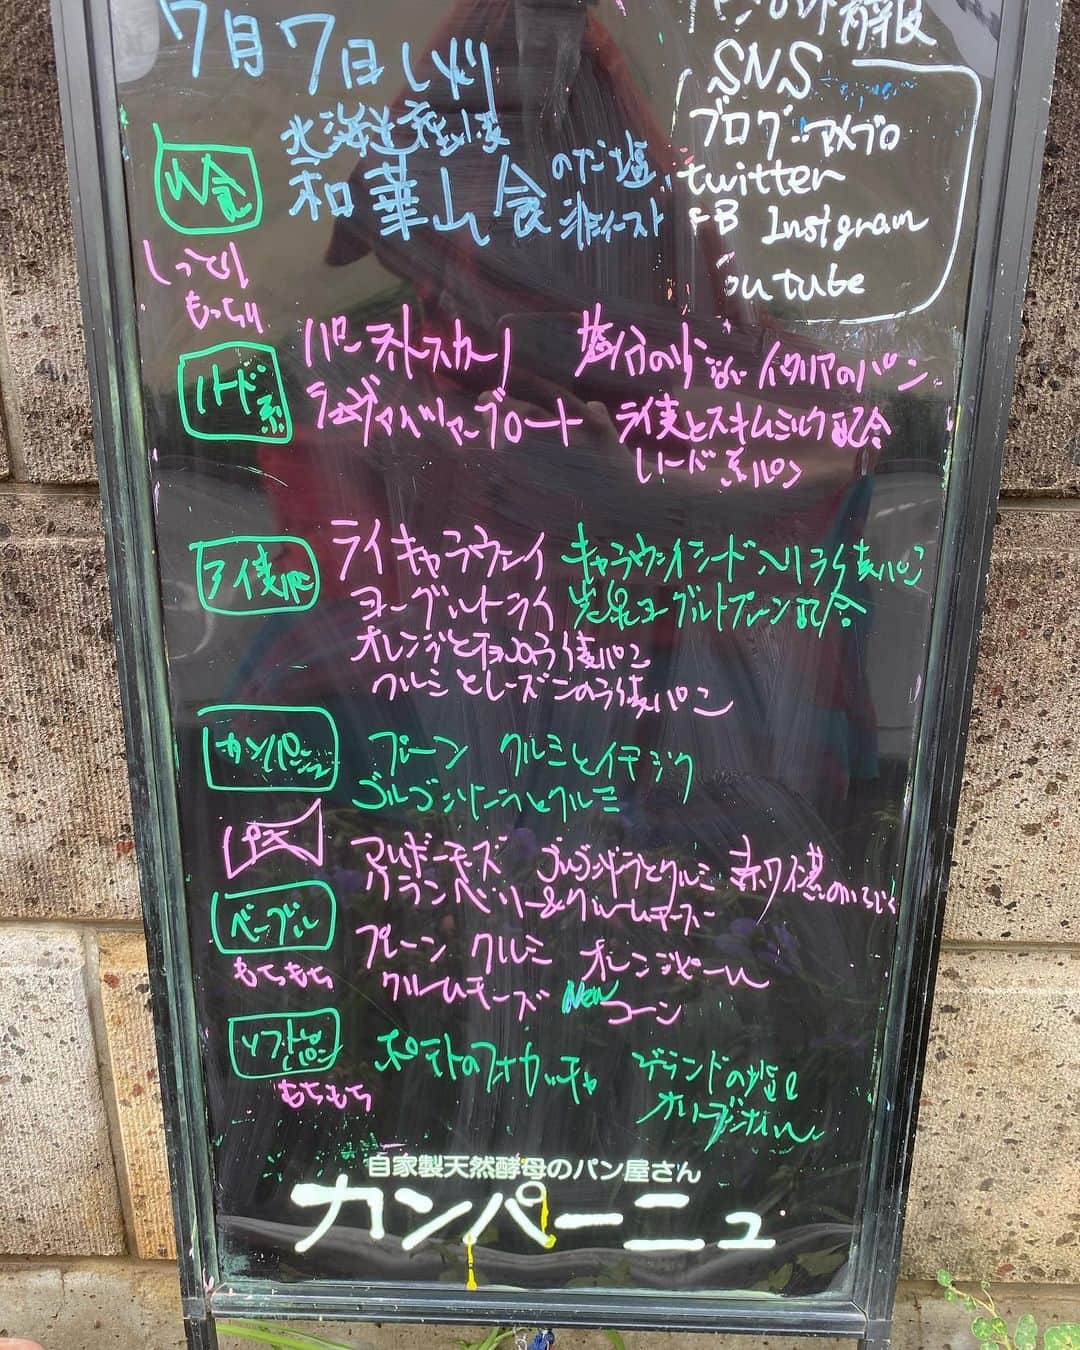 7月7日
SNS
ブログ:アメブロ
twitter
FB Instgram
outube
山食
北海道産小麦
和華山食 のだ塩
非イースト
しっとり
もっちり
ハード系
塩分の少ない イタリアのパン
ブロート ライ麦とスキムミルク配合
ハード系パン
ライ麦パン
ライキャラウェイ キャラウェイシード入りライ麦パン
ヨーグルトライ 岩泉ヨーグルトプレーン配合
オレンジとチョコのライ麦パン
クルミとレーズンのライ麦パン
カンパーニュ
プレーン クルミとイチジク
ゴルゴンゾーラとクルミ
プチ
アルボーモズ ゴルゴンゾーラとクルミ 赤ワイン煮のいちじく
クランベリー&クリームチーズ
ベーグル
もちもち
プレーン クルミ オレンジピール
クリームチーズ New コーン
ソフトなパン
もちもち
ポテトのフォカッチャ ゲランドの塩と
オリーブオイル
自家製天然酵母のパン屋さん
カンパーニュ